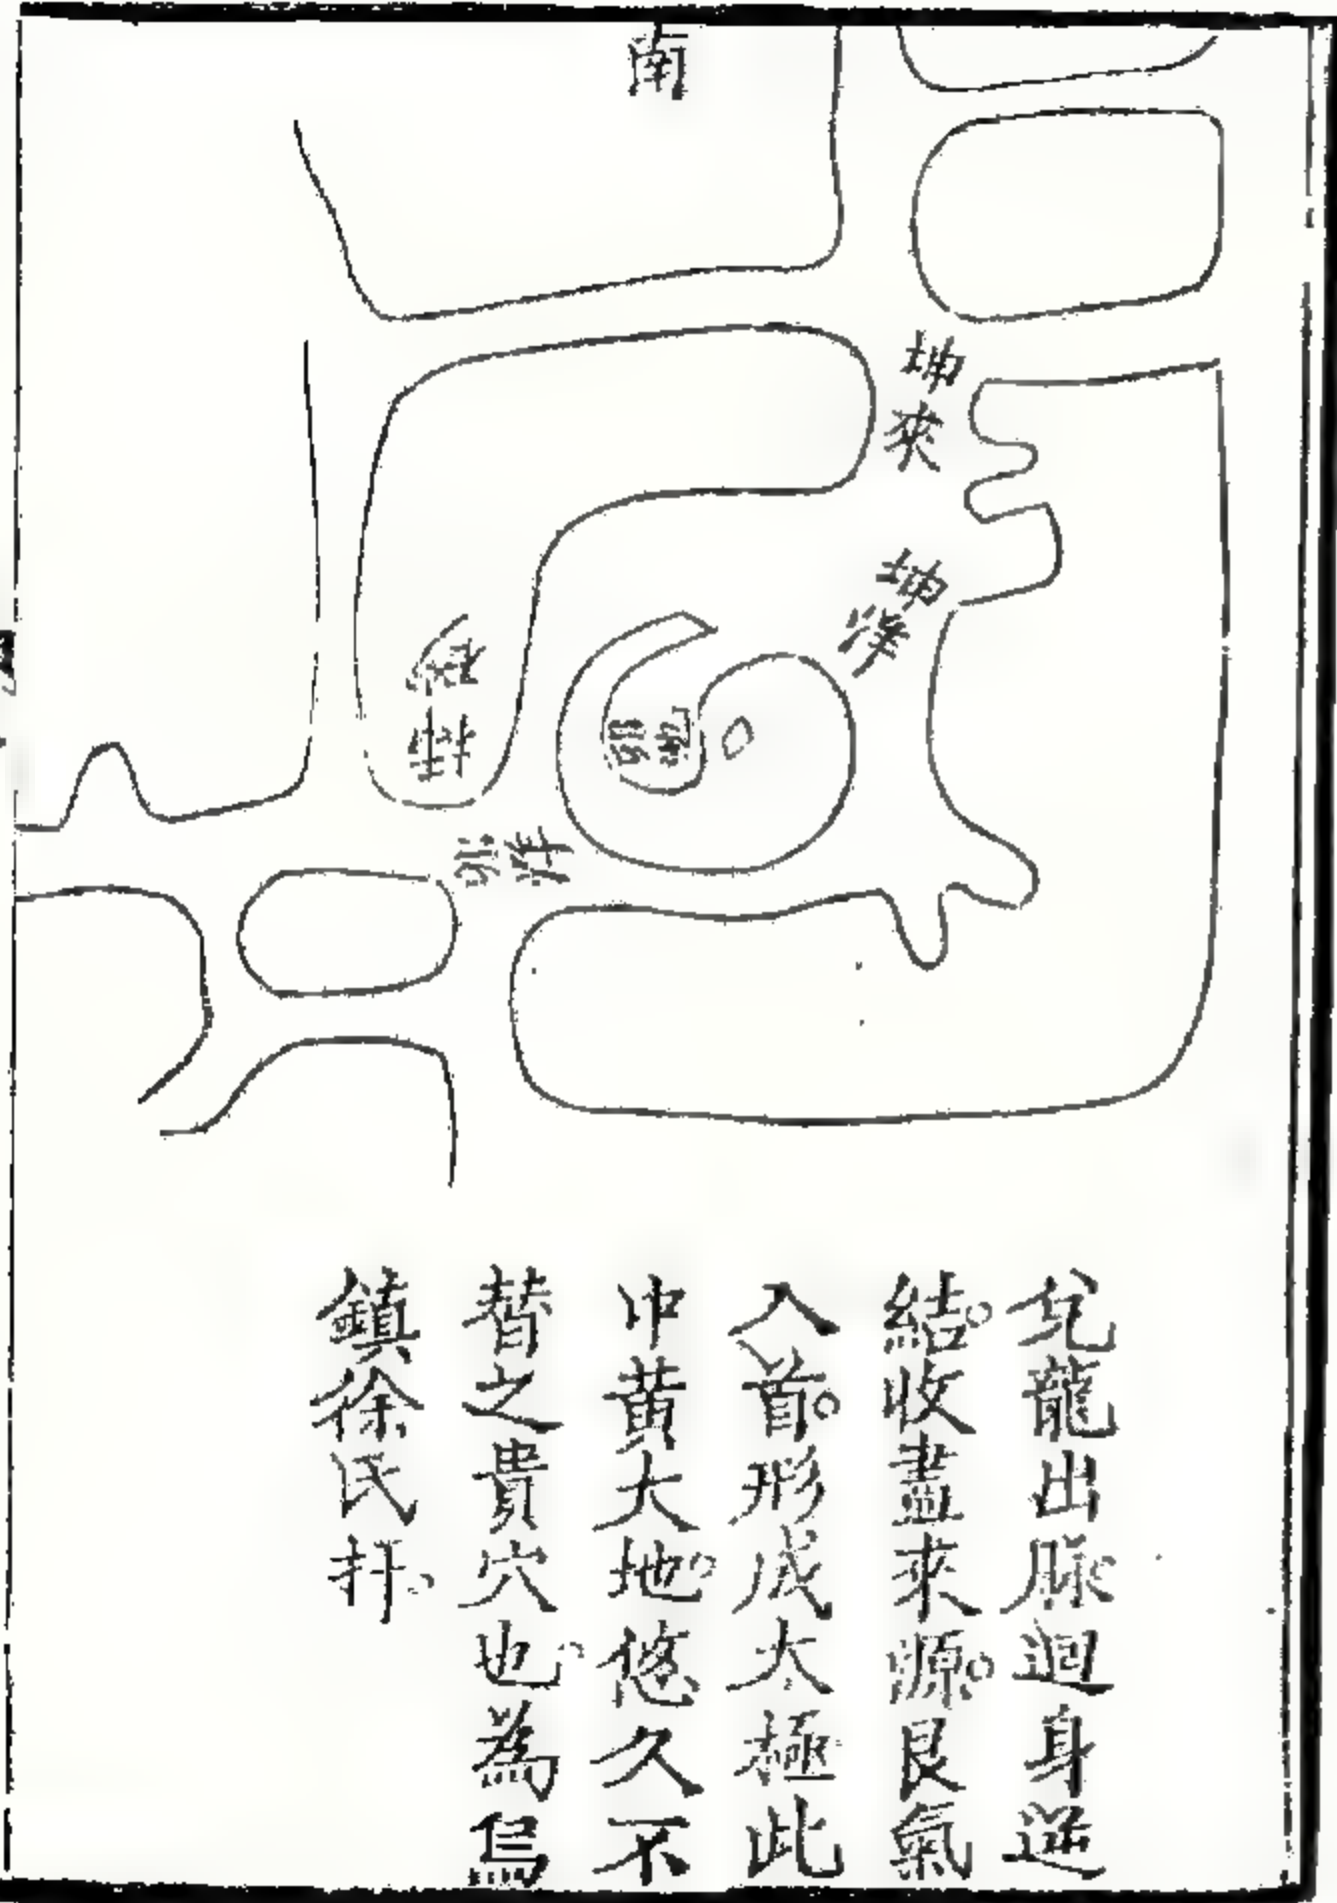 南
坤來
坤洋
兌龍出脉。迴身逆
結。收盡來源。艮氣
入首。形成太極此
中黃大地。悠久不
替之貴穴也。為烏
鎮徐氏扦。